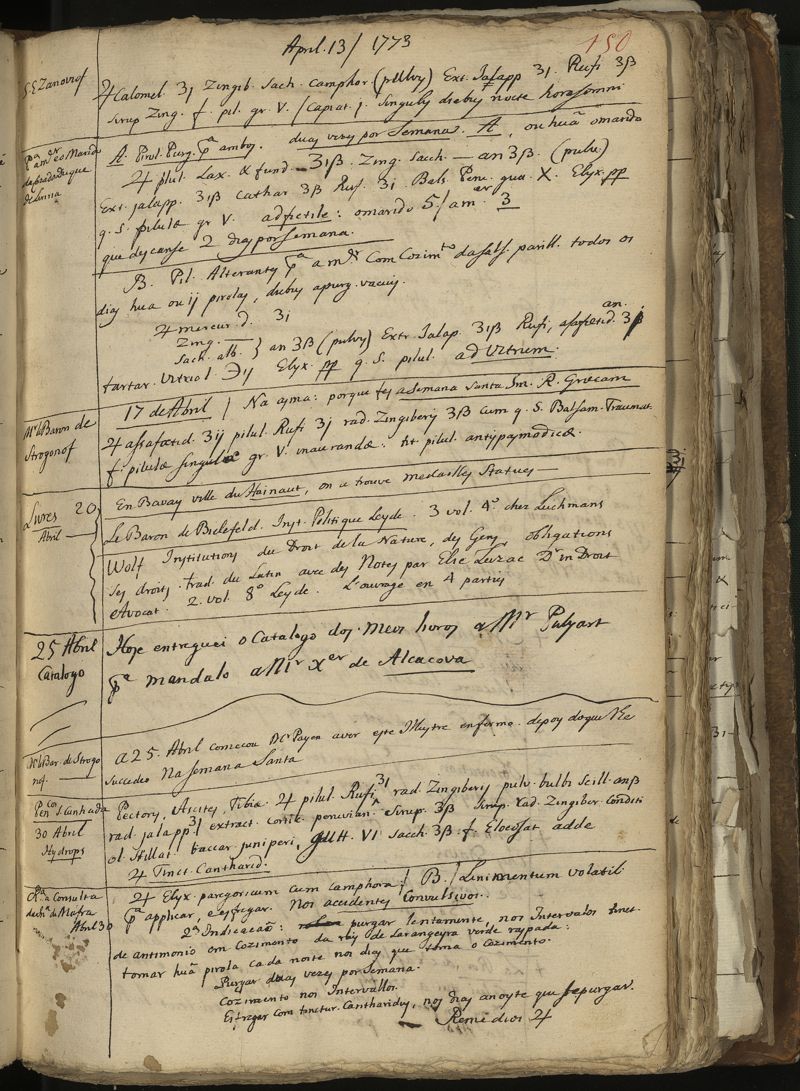 April. 13 / 1773
150
S. E. Zanoviof
♃ Calomel. ʒj Zingib. Sach. Camphor (pulvy) Ext. Jalapp ʒj. Rufi ʒβ
Sirup Zing. f. pil. gr. V. / Capiat j. Singulis diebus nocte hora somni
A. Pirol. Purg. pª ambos. duas vezes por Semana. A, ou huã o marido
♃ pilul. Lax. & fund. ʒiβ. Zing. Sacch. — an ʒβ. (pulv.)
Ext. jalapp. ʒiβ Cathar ʒβ Ruf. ʒi Bals Peru. gutt. X. Elyx. pp
q. s. pilulæ gr V. ad fictile: o marido 5 / a mer 3
que descanse 2 dias por Semana.
B. Pil. Alterantes pª a mer Com Cozimto da sals. parill. todos os
dias hua ou ij pirolas, diebus a purg. vacuis.
♃ mercur. d. ʒi
Zing. —
Sach. alb. } an ʒβ (pulv) Extr. Jalap. ʒiβ Rufi, assafoetid. an. ʒβ
tartar. Vitriol. ℈ij Elyx. pp q. S. pilul. ad Vitrum.
Mr. le Baron de
Strogonof
17 de Abril / Na asma: porque fes a Semana Santa Sm. R. Græcam
♃ assafoetid. ʒij pilul. Rufi ʒj rad. Zingiberis ʒβ Cum q. S. Balsam. Traumat.
f. pilulæ singulæ gr. V. inaurandæ: tit pilul. antispasmodicæ.
Livres 20
Abril
En Bavay ville du Hainaut, on a trouve medailles Statues —
Le Baron de Bielefeld. Inst. Politique Leyde. 3 vol. 4º chez Luchmans
Wolf Institutions du Droit de la Nature, des Gens, obligations
Ses droits. trad. du Latin avec des Notes par Elie Luzac Dr in Droit
e Avocat. 2. vol. 8º Leyde. L'ouvrage en 4 parties
25 Abril
Catalogo
Hoje entreguei o Catalogo dos meus livros a Mr Pulyart
pª mandalo a Mr Xer de Alcacova
Mr. le Bar. de Strogo
nof.
a 25. Abril comecou Mr Payen a ver este Illustre enfermo. depois do que lhe
Succedeo Na Semana Santa
30 Abril
Hydrops
Pectoris, Ascites, Tibiæ. ♃ pilul. Rufi ʒj rad. Zingiberis pulv. bulbi Scill. an β
rad. jalapp. ʒj extract. Cortic. peruvian. Sirup. ʒβ Sirup. rad. Zingiber. Conditi
ol. stillat. baccar. juniperi, gutt. VI Sacch. ʒβ. f. Eleosat. adde
♃ Tinct. Cantharid.
Rª a Consulta
de Mafra
Abril 30
♃ Elyx. paregoricum cum camphora / B. / Linimentum volatil
pª applicar, e esfregar. Nos accidentes Convulsivos.
2ª Indicacaõ: purgar lentamente, nos Intervalos tinct.
de antimonio em Cozimento da rais de Larangeyra verde raspada:
tomar huã pirola cada noite nos dias que toma o Cozimento.
Purgar duas vezes por Semana.
Cozimento nos Intervallos.
Esfregar com tinctur. Cantharidis, nos dias a noyte que se purgar.
— Remedios ♃